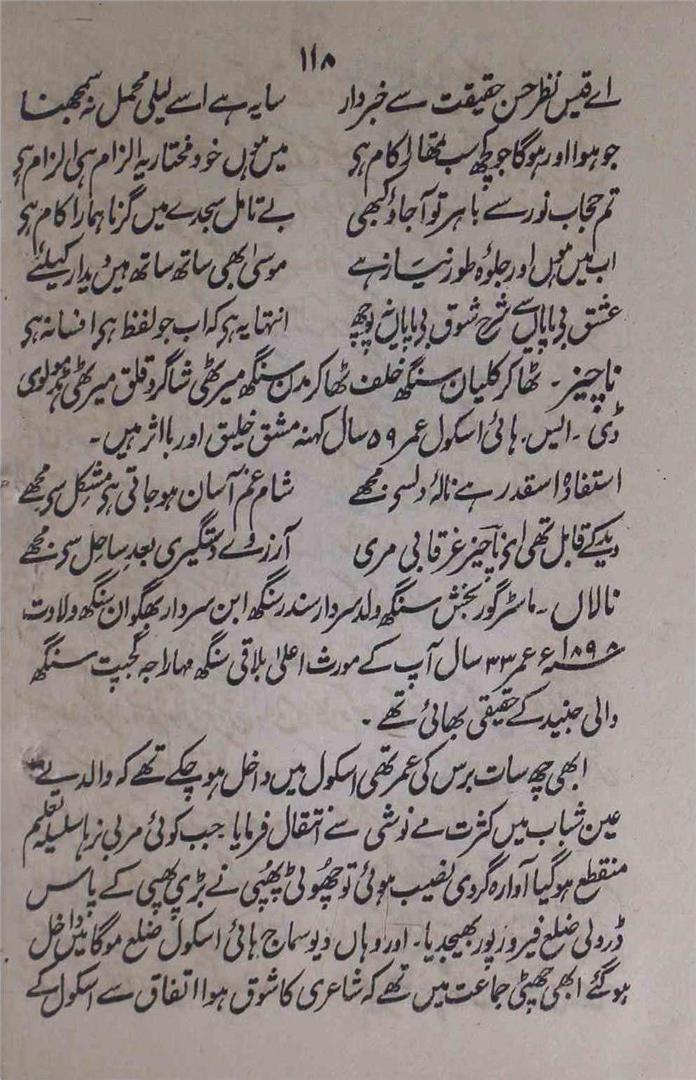 ۱۱۸
اے قیس نظر حسن حقیقت سے خبردار سایہ ہے اسے لیلیٰ محمل نہ سمجھنا
جو ہوا اور ہوگا جو کچھ سب تمھارا کام ہی میں ہوں خود مختار یہ الزام ہی الزام ہی
تم حجاب نور سے باہر تو آجاؤ کبھی بے تامل سجدے میں گرنا ہمارا کام ہی
اب میں ہوں اور جلوۂ طور نیاز ہے موسیٰ بھی ساتھ ساتھ ہیں دیدار کیلئے
عشق بی پایاں سے شرح شوق بی پایاں نہ پوچھ انتہا یہ ہی کہ اب جو لفظ ہی افسانہ ہی
ناچیز۔ ٹھاکر کلیان سنگھ خلف ٹھاکر مدن سنگھ میرٹھی شاگرد قلق میرٹھی مولوی
ڈی۔ ایس۔ ہائی اسکول عمر ۵۹ سال کہنہ مشق خلیق اور بااثر ہیں۔
استفادہ اسقدر ہے نالۂ دلسی مجھے شام غم آسان ہوجاتی ہی مشکل سی مجھے
دیکھنے قابل تھی ای ناچیز غرقابی مری آرزوے دستگیری بعد ساحل سی مجھے
نالاں۔ ماسٹر گوربخش سنگھ ولد سردار سندر سنگھ ابن سردار بھگوان سنگھ ولادت
۱۸۹۸ء عمر ۳۳ سال آپ کے مورث اعلیٰ بلاقی سنگھ مہاراجہ گجپت سنگھ
والی جنید کے حقیقی بھائی تھے۔
ابھی چھ سات برس کی عمر تھی اسکول میں داخل ہوچکے تھے کہ والد نے
عین شباب میں کثرت مے نوشی سے انتقال فرمایا جب کوئی مربی نرہا سلسلہ تعلیم
منقطع ہوگیا آوارہ گردی نصیب ہوئی تو چھوٹی پھپی نے بڑی پھپی کے پاس
ڈرولی ضلع فیروزپور بھیجدیا۔ اور وہاں دیو سماج ہائی اسکول ضلع موگا میں داخل
ہوگئے ابھی چھٹی جماعت میں تھے کہ شاعری کا شوق ہوا اتفاق سے اسکول کے